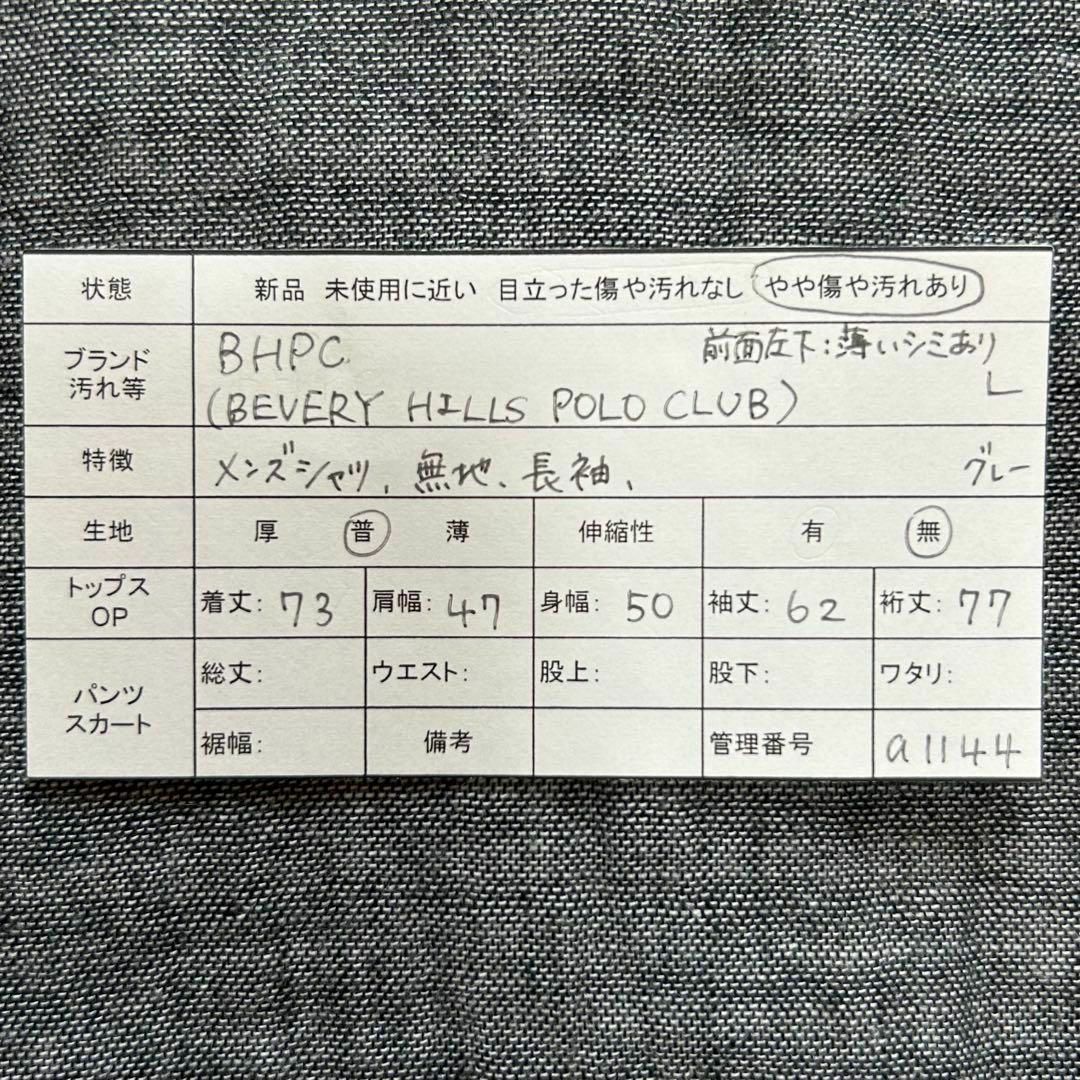 状態 新品 未使用に近い 目立った傷や汚れなし やや傷や汚れあり
ブランド 汚れ等 BHPC 前面左下:薄いシミあり
(BEVERY HILLS POLO CLUB) L
特徴 メンズシャツ、無地、長袖、 グレー
生地 厚 普 薄 伸縮性 有 無
トップス OP 着丈: 73 肩幅: 47 身幅: 50 袖丈: 62 裄丈: 77
パンツ スカート 総丈: ウエスト: 股上: 股下: ワタリ:
裾幅: 備考 管理番号 a1144